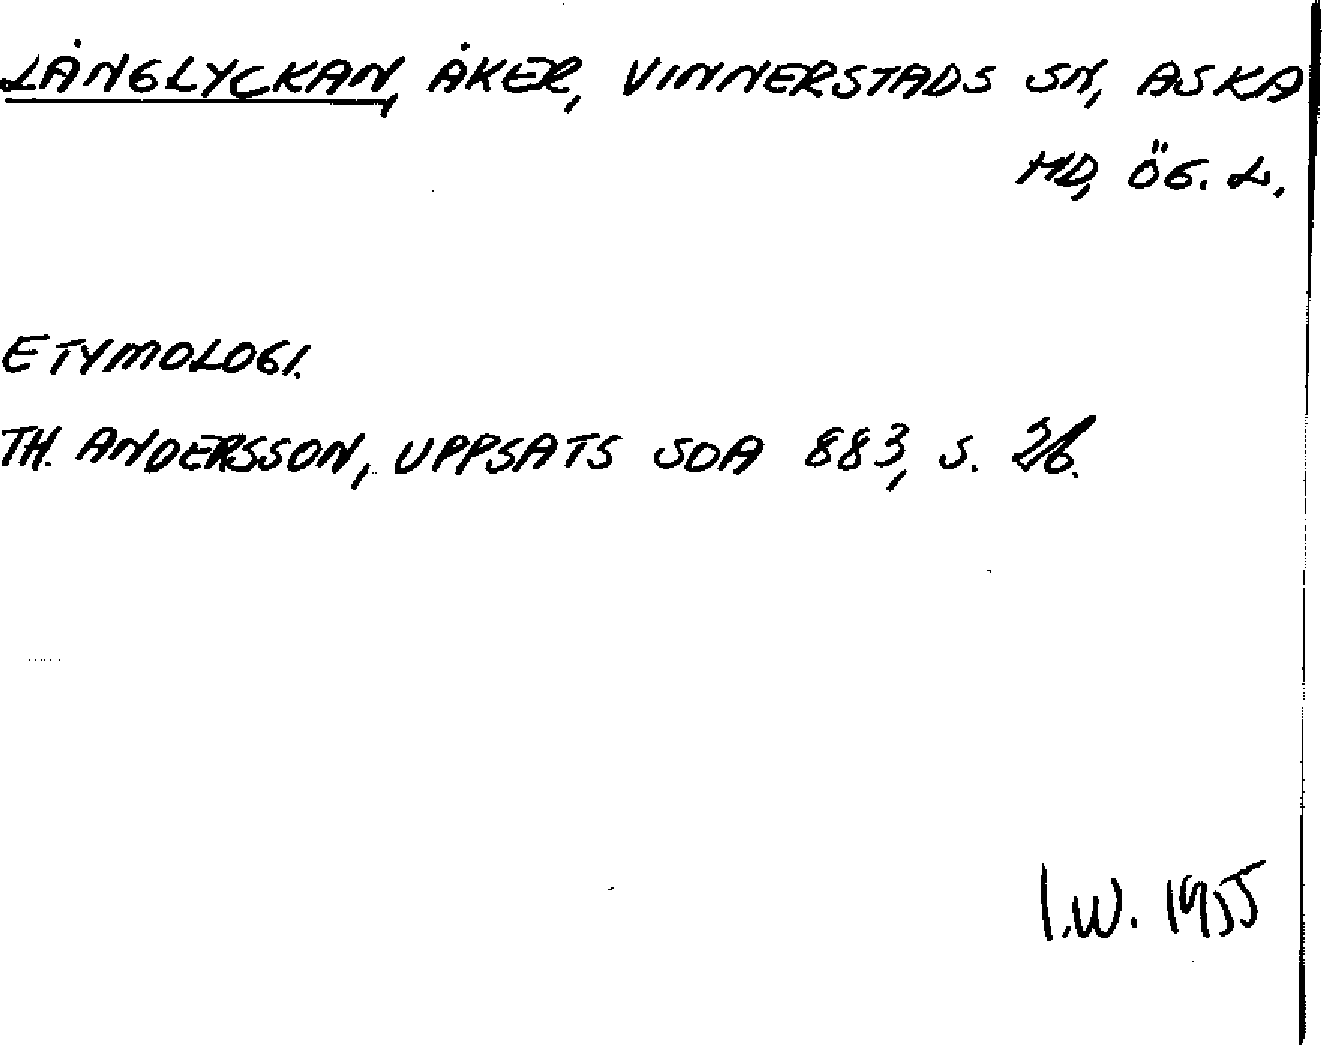 LÅNGLYCKAN, ÅKER, VINNERSTADS SN, ASKA
HD, ÖG. L.
ETYMOLOGI.
TH. ANDERSSON, UPPSATS SOA 883, S. 
I.W. 1955